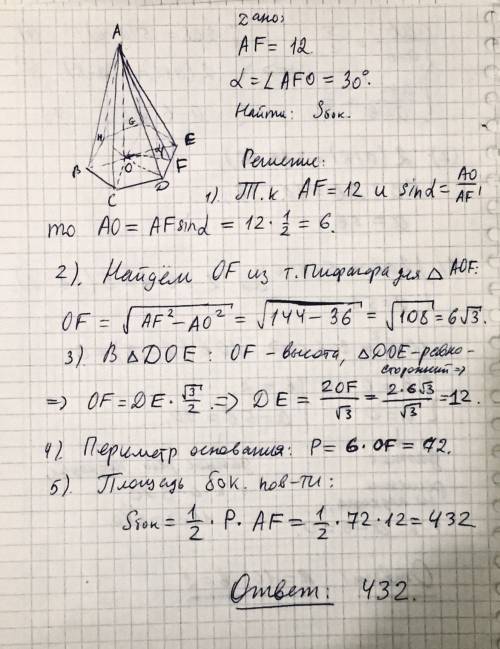 A
Дано:
AF = 12
α = ∠AFO = 30°.
Найти: Sбок.
H G E
B O α F
C D
Решение:
1) Т.к AF = 12 и sinα = AO/AF,
то AO = AF sinα = 12 · 1/2 = 6.
2). Найдём OF из т. Пифагора для △ AOF:
OF = √(AF² − AO²) = √(144 − 36) = √108 = 6√3.
3). В △DOE : OF - высота, △DOE - равно-
сторонний ⇒
⇒ OF = DE · √3/2 . ⇒ DE = 2OF/√3 = 2·6√3/√3 = 12.
4). Периметр основания: P = 6 · OF = 72.
5). Площадь бок. пов-ти:
Sбок = 1/2 · P · AF = 1/2 · 72 · 12 = 432
Ответ: 432.